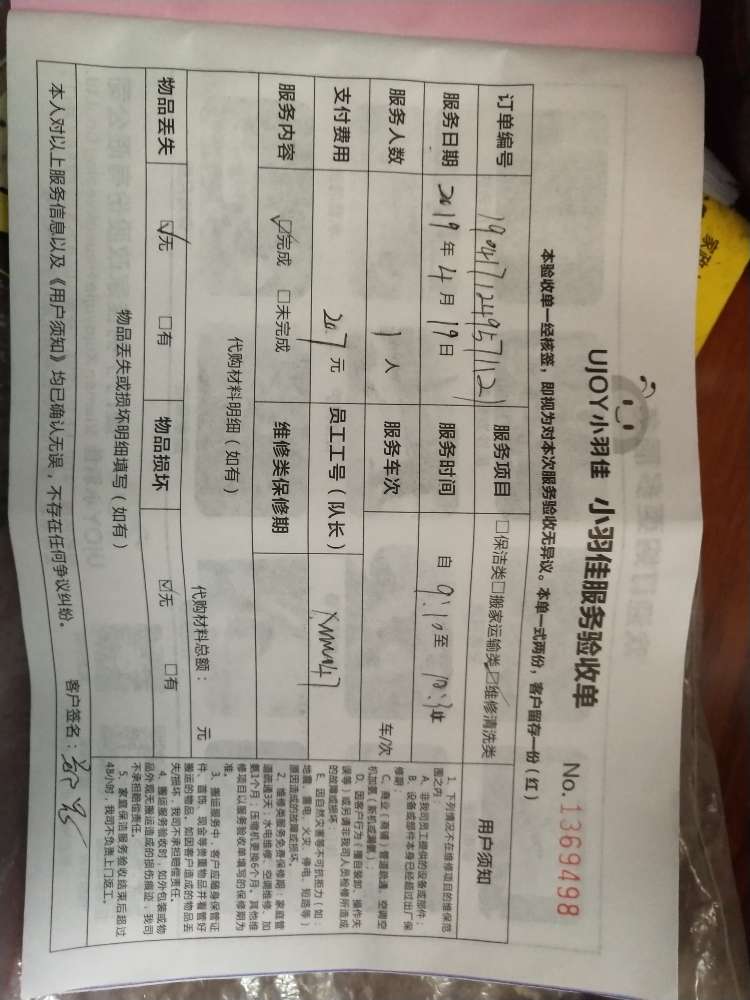 UJOY小羽佳 小羽佳服务验收单
No.1369498
本验收单一经核签，即视为对本次服务验收无异议。本单一式两份，客户留存一份（红）
订单编号 服务项目 □保洁类□搬家运输类☑维修清洗类
服务日期 2019年4月19日 服务时间 自 9:10至
服务人数 1人 服务车次 车/次
支付费用 元 员工工号（队长）
服务内容 ☑完成 □未完成 维修类保修期
代购材料明细（如有） 代购材料总额： 元
物品丢失 ☑无 □有 物品损坏 ☑无 □有
物品丢失或损坏明细填写（如有）
本人对以上服务信息以及《用户须知》均已确认无误，不存在任何争议纠纷。 客户签名：
用户须知
1、下列情况不在维修项目的维保范
围之内：
A、非我司员工提供的设备或部件；
B、设备或部件本身已经超过出厂保
修期；
C、商业（商铺）管道疏通、空调空
机加氨（新机或漏氨）；
D、因客户行为（擅自装卸、操作失
误等）或另请非我司人员检修所造成
的故障或损坏；
E、因自然灾害等不可抗拒力（如：
地震、雷电、火灾、停电、短路等）
原因造成的故障或损坏。
2、维修类服务免费保修期：家庭管
道疏通3天；水电维修、空调维修、加
氨1个月；压缩机更换6个月；其他维
修项目以服务验收单填写的保修期为
准。
3、搬运服务中，客户应随身保管证
件、首饰、现金等贵重物品并看管好
搬运的物品，如因客户造成的物品丢
失/损坏，我司不承担赔偿责任。
4、搬运服务验收时，如外包装或物
品外观无搬运造成的损伤痕迹，我司
不承担赔偿责任。
5、家庭保洁服务验收结束后超过
48小时，我司不负责上门返工。